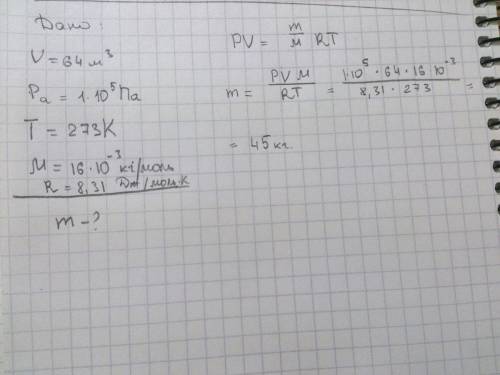 Дано:
V = 64 м³
Pa = 1·10⁵ Па
T = 273К
M = 16·10⁻³ кг/моль
R = 8,31 Дж/моль·К
m – ?
PV = m/м RT
m = PVM/RT = 1·10⁵·64·16·10⁻³/8,31·273 =
= 45 кг.